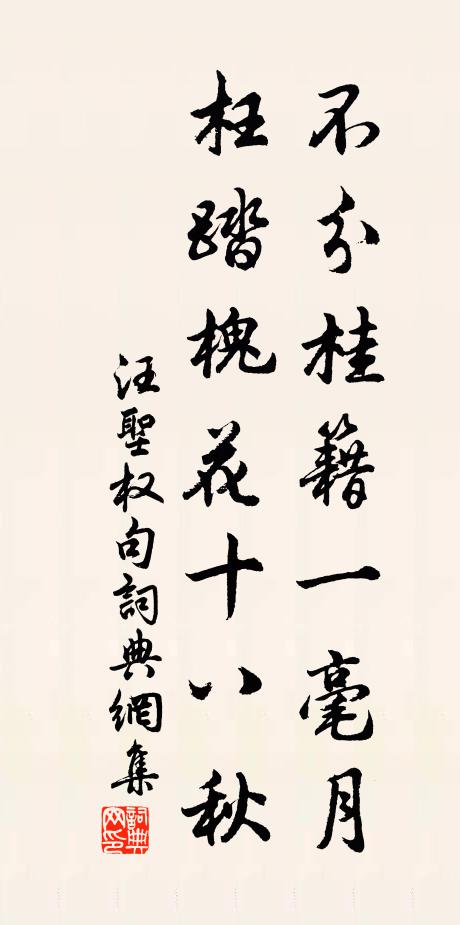 不分桂籍一毫月
枉踏槐花十八秋
汪聖权句詞典網集
詞典网印